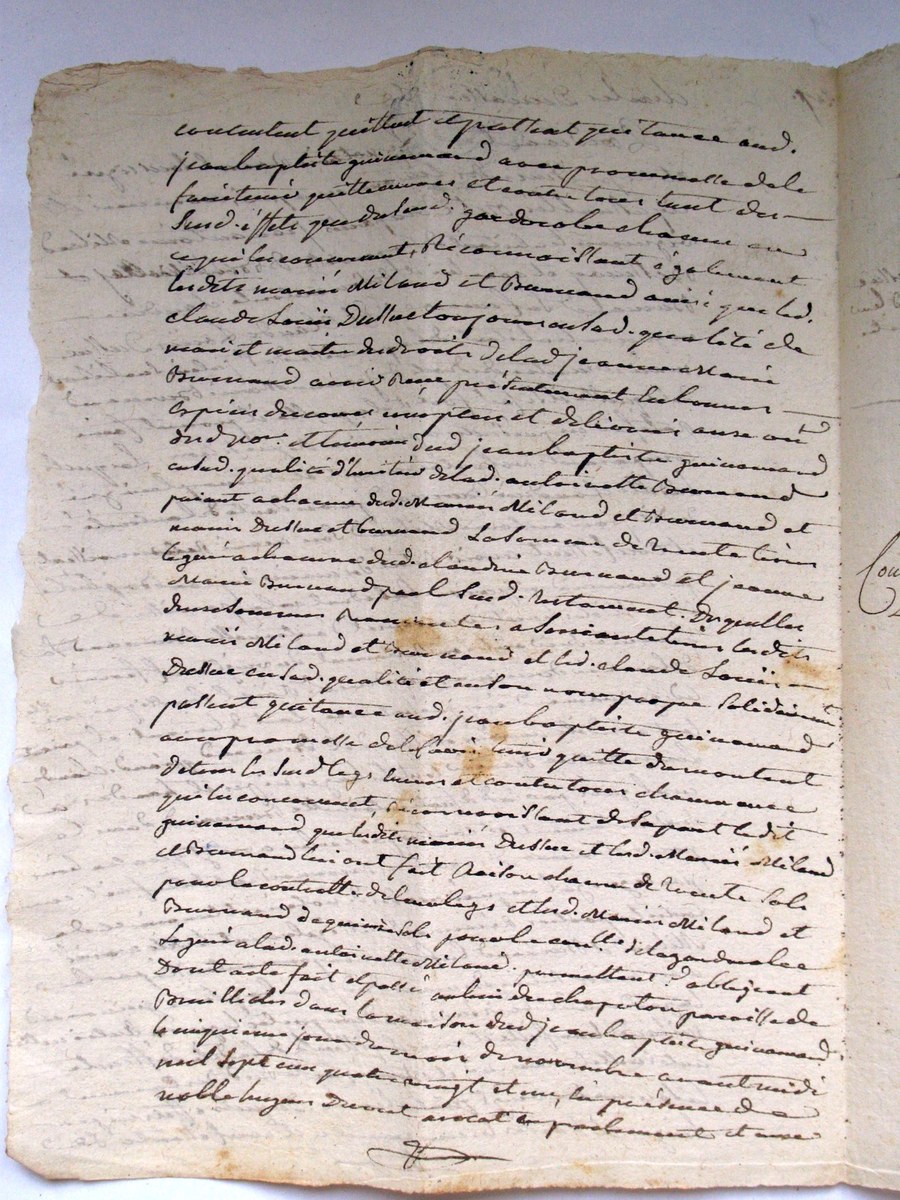 contentent quittent et passent quittance aud.
jean baptiste guinamand avec promesse de le
faire tenir quitte envers et contre tous tant des
susd. effets que du susd. garderobe chacun en
ce qui les concernent, Reconnoissant également
lesdits mariés Miland et Burnand ainsi que led.
claude Louis Dussuc toujours en sad. qualité de
mari et maitre des droits de lad jeanne Marie
Burnand avoir Reçu présentement en bonnes
espèces de cours
dud jean baptiste guinamand
en sad. qualité d'heritier de lad. antoinette Burnand
paiant a chacun desd. Mariés Miland et Burnand et
mariés Dussuc et burnand La Somme de trente livres
legués a chacune desd. claudine Burnand et jeanne
Marie Burnand par le Susd. testament. Desquelles
deux Sommes a Soixante livres lesdits
mariés Miland et Burnand et led. claude Louis
Dussuc en sad. qualité et en son nom propre Solidairement
passent quittance aud. jean baptiste guinamand
avec promesse de le faire tenir quitte du montant
de tous les Susd legs envers et contre tous chacun en ce
qui les concernent, Reconnoissant de sa part ledit
guinamand que lesdits mariés Dussuc et lesd. Mariés Miland
et Burnand lui ont fait Raison chacun de trente Sols
pour le controlle de leur legs et lesd. Mariés Miland et
Burnand de quinze Sols pour le controlle de la garderobe
Leguée a lad. antoinette Miland. promettant obligeant
Dont acte fait et passé au lieu du chapoton paroisse de
Brullioles dans la maison dud jean baptiste guinamand
le cinquieme jour du mois de novembre avant midi
mil Sept cent quatre vingt et un, En présence de
noble avocat en parlement et